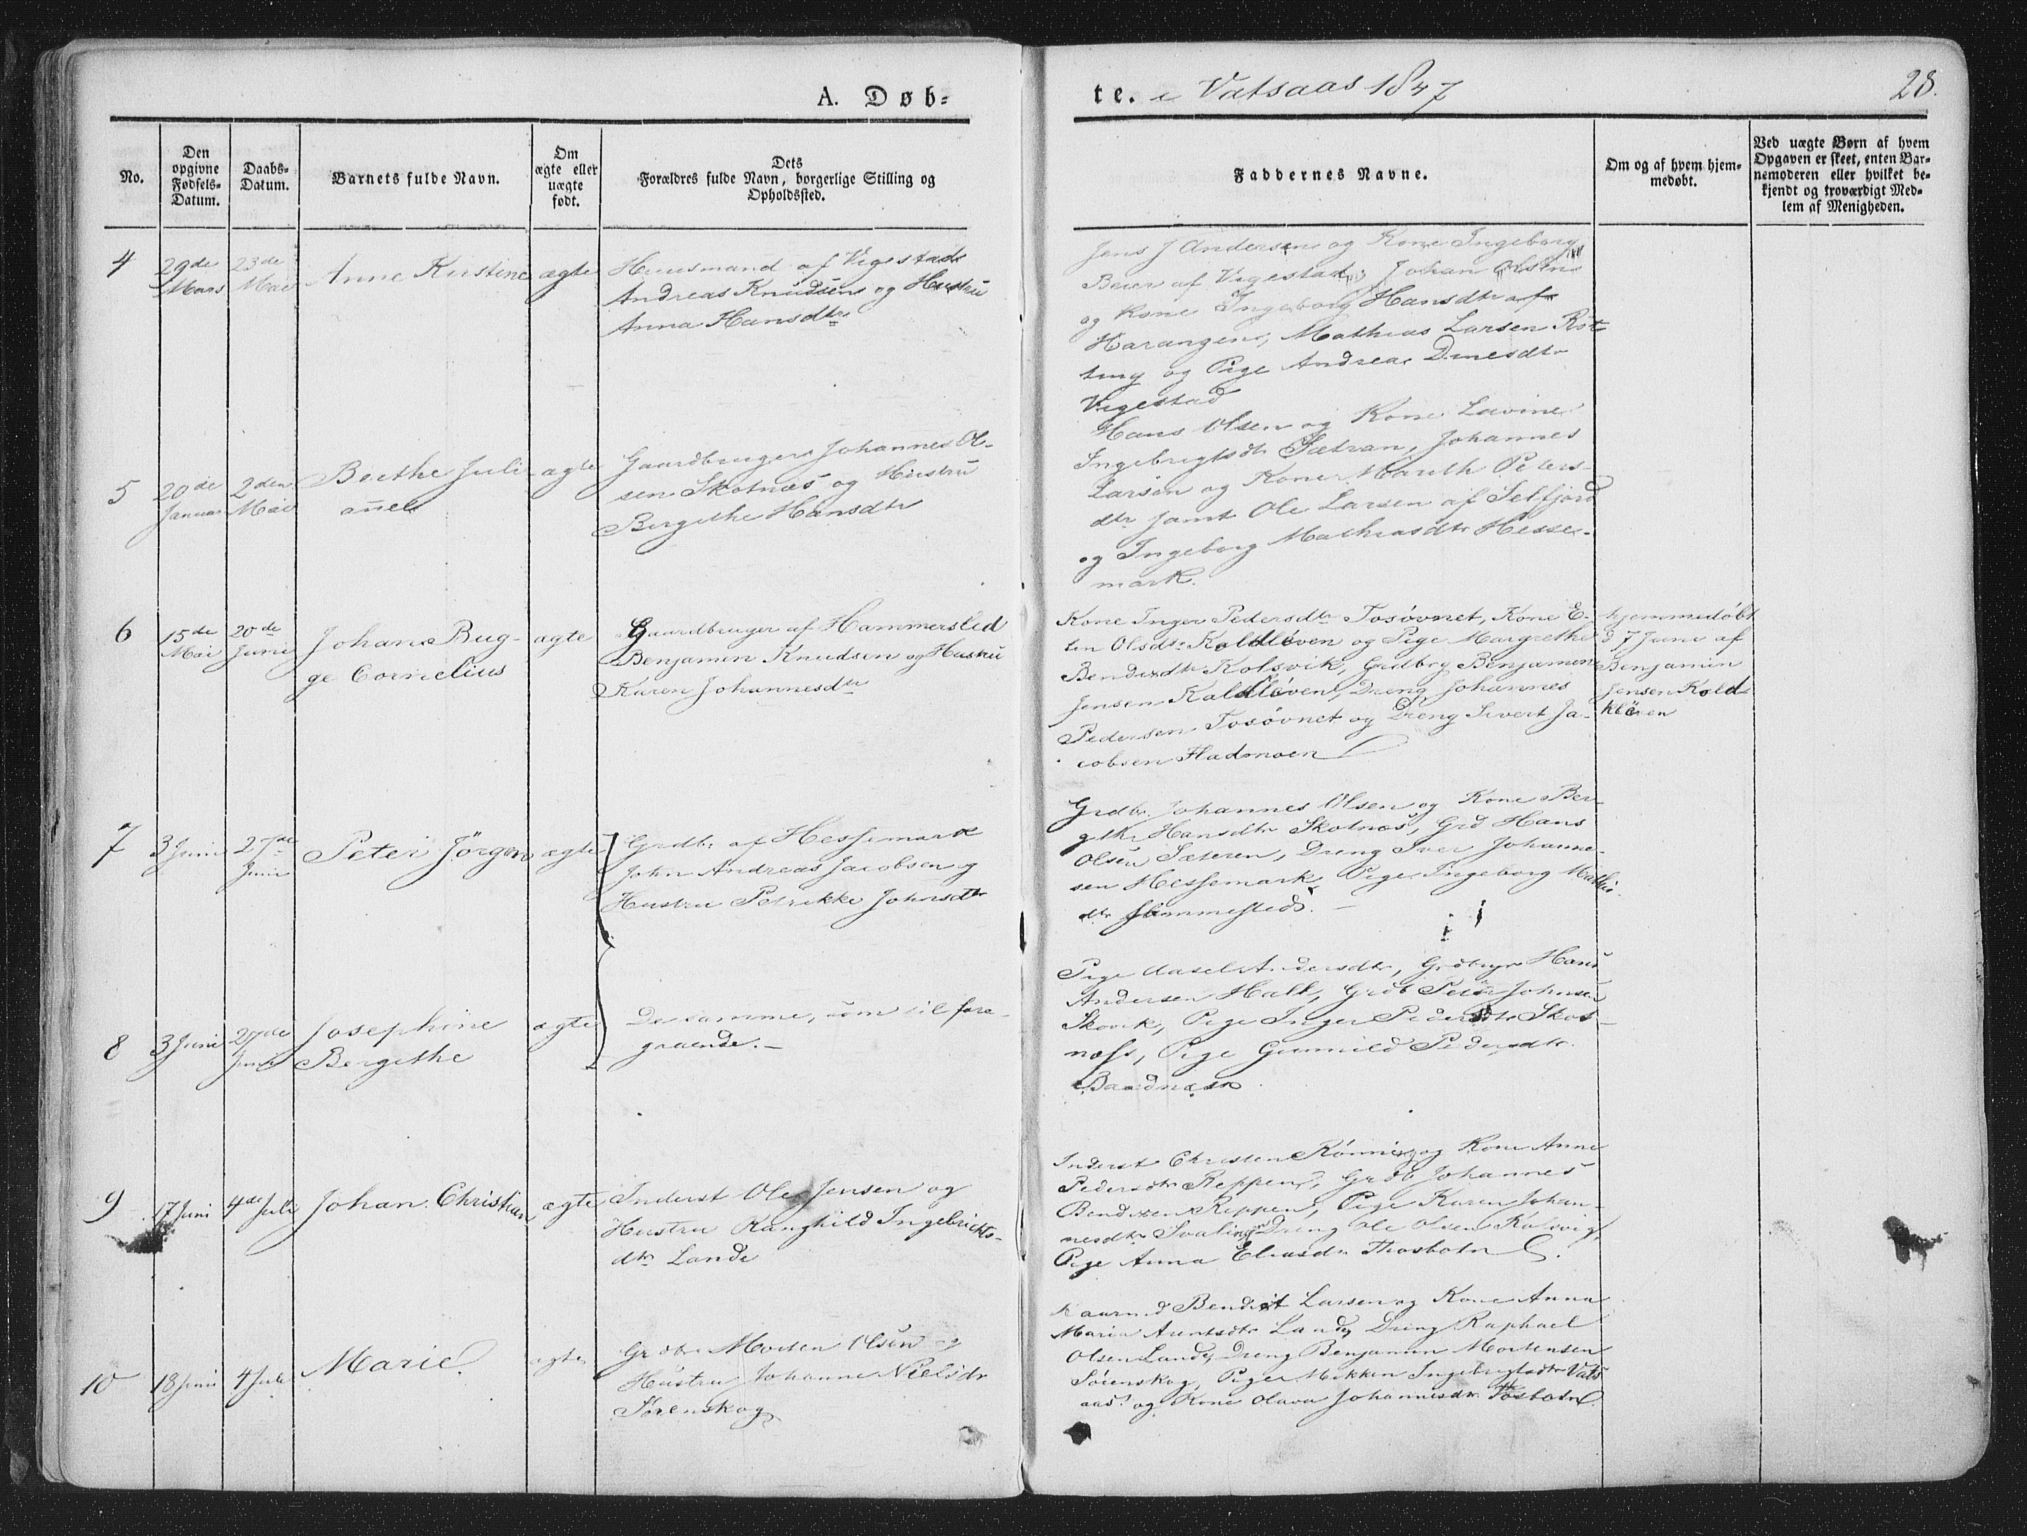 A. Døb-
te. i Vatsaas 1847
28.
No.
Den opgivne Fødsels-Datum.
Daabs-Datum.
Barnets fulde Navn.
Om ægte eller uægte født.
Dets Forældres fulde Navn, borgerlige Stilling og Opholdssted.
Faddernes Navne.
Om og af hvem hjem-
medøbt.
Ved uægte Børn af hvem
Opgaven er skeet, enten Bar-
nemoderen eller hvilket be-
kjendt og troværdigt Med-
lem af Menigheden.
4
29de
Mars
23de
Mai
Anne Kirstine
ægte
Huusmand af Vegestad
Andreas Knudsen og Hustru
Anna Hansdtr
Jens J Andersen og Kone Ingeborg
Beier af Vegestad, Johan Olsen
og Kone Ingeborg Hansdtr af
Harangen, Mathias Larsen
og Pige Andrea
Vegestad
5
20de
Januar
2den
Mai
Berthe Juli
anne
ægte
Gaardbruger Johannes Ol-
sen Skotnæs og Hustru
Bergithe Hansdtr
Hans Olsen og Kone Lavine
Ingebrigtsdtr Sætran, Johannes
Larsen og Kone Marith Peters-
dtr samt Ole Larsen af Selfjord
og Ingeborg Mathiasdtr Hesse-
mark.
6
15de
Mai
20de
Juni
Johan Bug-
ge Cornelius
ægte
Gaardbruger af Hammersted
Benjamin Knudsen og Hustru
Karen Johannesdtr
Kone Inger Pedersdtr Tosövnet, Kone E-
len Olsdtr Koldkleven og Pige Margrethe
Bendixdtr Kolsvik, Grdbrg Benjamin
Jensen Koldkleven, Dreng Johannes
Pedersen Tosövnet og Dreng Sivert Ja-
cobsen Fladmoen
hjemmedøbt
d 7 June af
Benjamin
Jensen Kold
kleven
7
3 Juni
27de
Juni
Peter Jörgen
ægte
Grdb. af Hessemark
John Andreas Jacobsen og
Hustru Petrikke Johnsdtr
Grdb. Johannes Olsen og Kone Ber-
gthe Hansdtr Skotnæs, Grd Hans
Olsen Sæteren, Dreng Iver Johanne-
sen Hessemark, Pige Ingeborg
dtr Hammersted. —
8
3 Juni
27de
Juni
Josephine
Bergithe
ægte
De samme, som til fore-
gaaende. —
Pige Andersdtr, Grdbrgr Hans
Andersen Hall, Grdb Peter Johnsen
Skovik, Pige Inger Pedersdtr Skot-
næss, Pige Gunnild Pedersdtr
9
17 Juni
4de Juli
Johan Christian
ægte
Inderst Ole Jensen og
Hustru Ranghild Ingebrigts-
dtr Lande
Inderst Christen Rönning og Kone Anne
Pedersdtr Reppen, Grdb Johannes
Bendixen Reppen, Pige Karen Johan-
nesdtr Dreng Ole Olsen Kolsvig,
Pige Anna Eliasdtr Thosbotn
10
18 Juni
4 Juli
Marie
ægte
Grdbr Morten Olsen og
Hustru Johanna Nielsdtr
Sörenskog
Kaarmd Bendixt Larsen og Kone Anna
Maria Arntsdtr Lande, Dreng Raphael
Olsen Lande, Dreng Benjamin Mortensen
Sörenskog, Pige Mekken Ingebrigtsdtr Vats
aas, og Kone Olava Johannesdtr Tosbotn